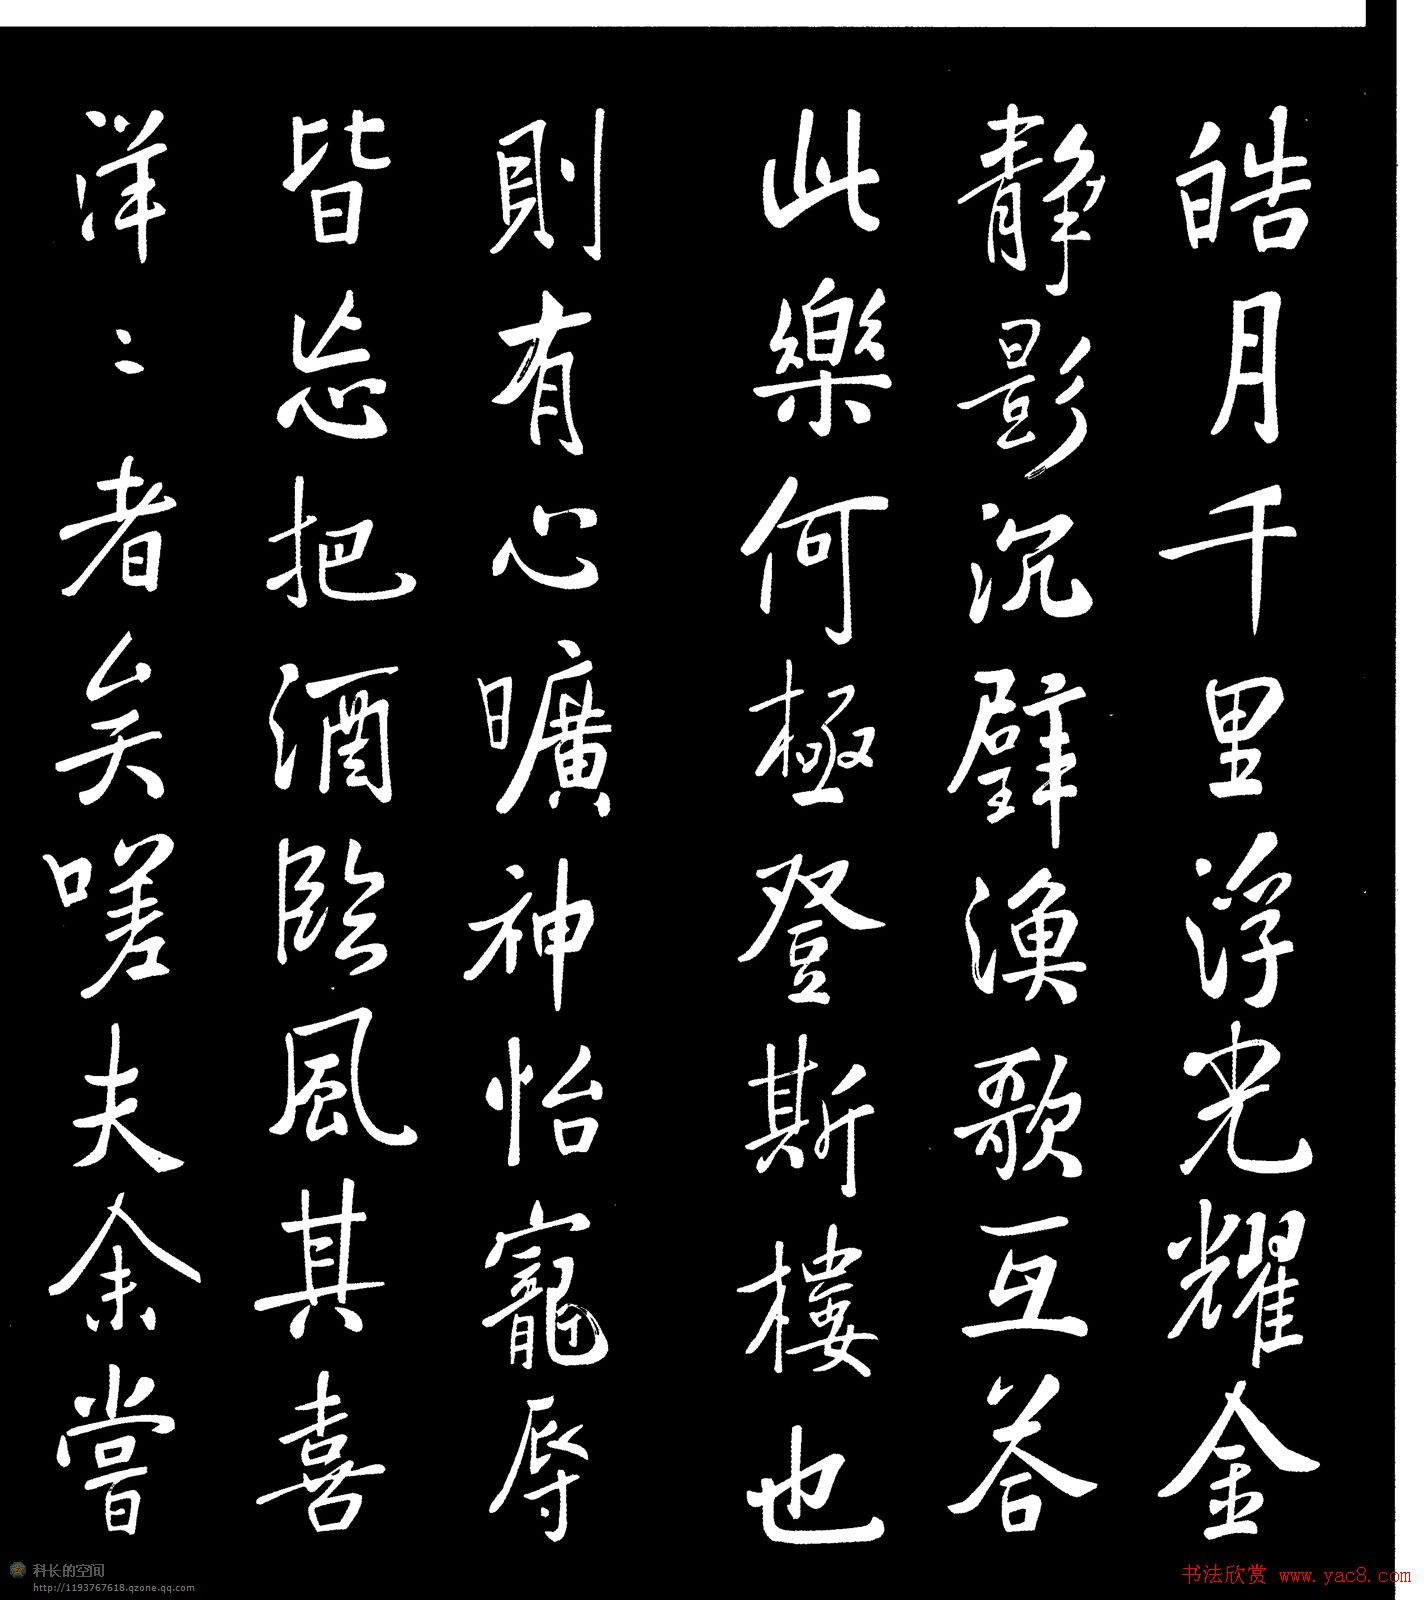 皓月千里浮光耀金
静影沉璧漁歌互答
此樂何極登斯樓也
則有心曠神怡寵辱
皆忘把酒臨風其喜
洋〻者矣嗟夫余嘗
科长的空间
http://1193767618.qzone.qq.com
书法欣赏 www.yac8.com